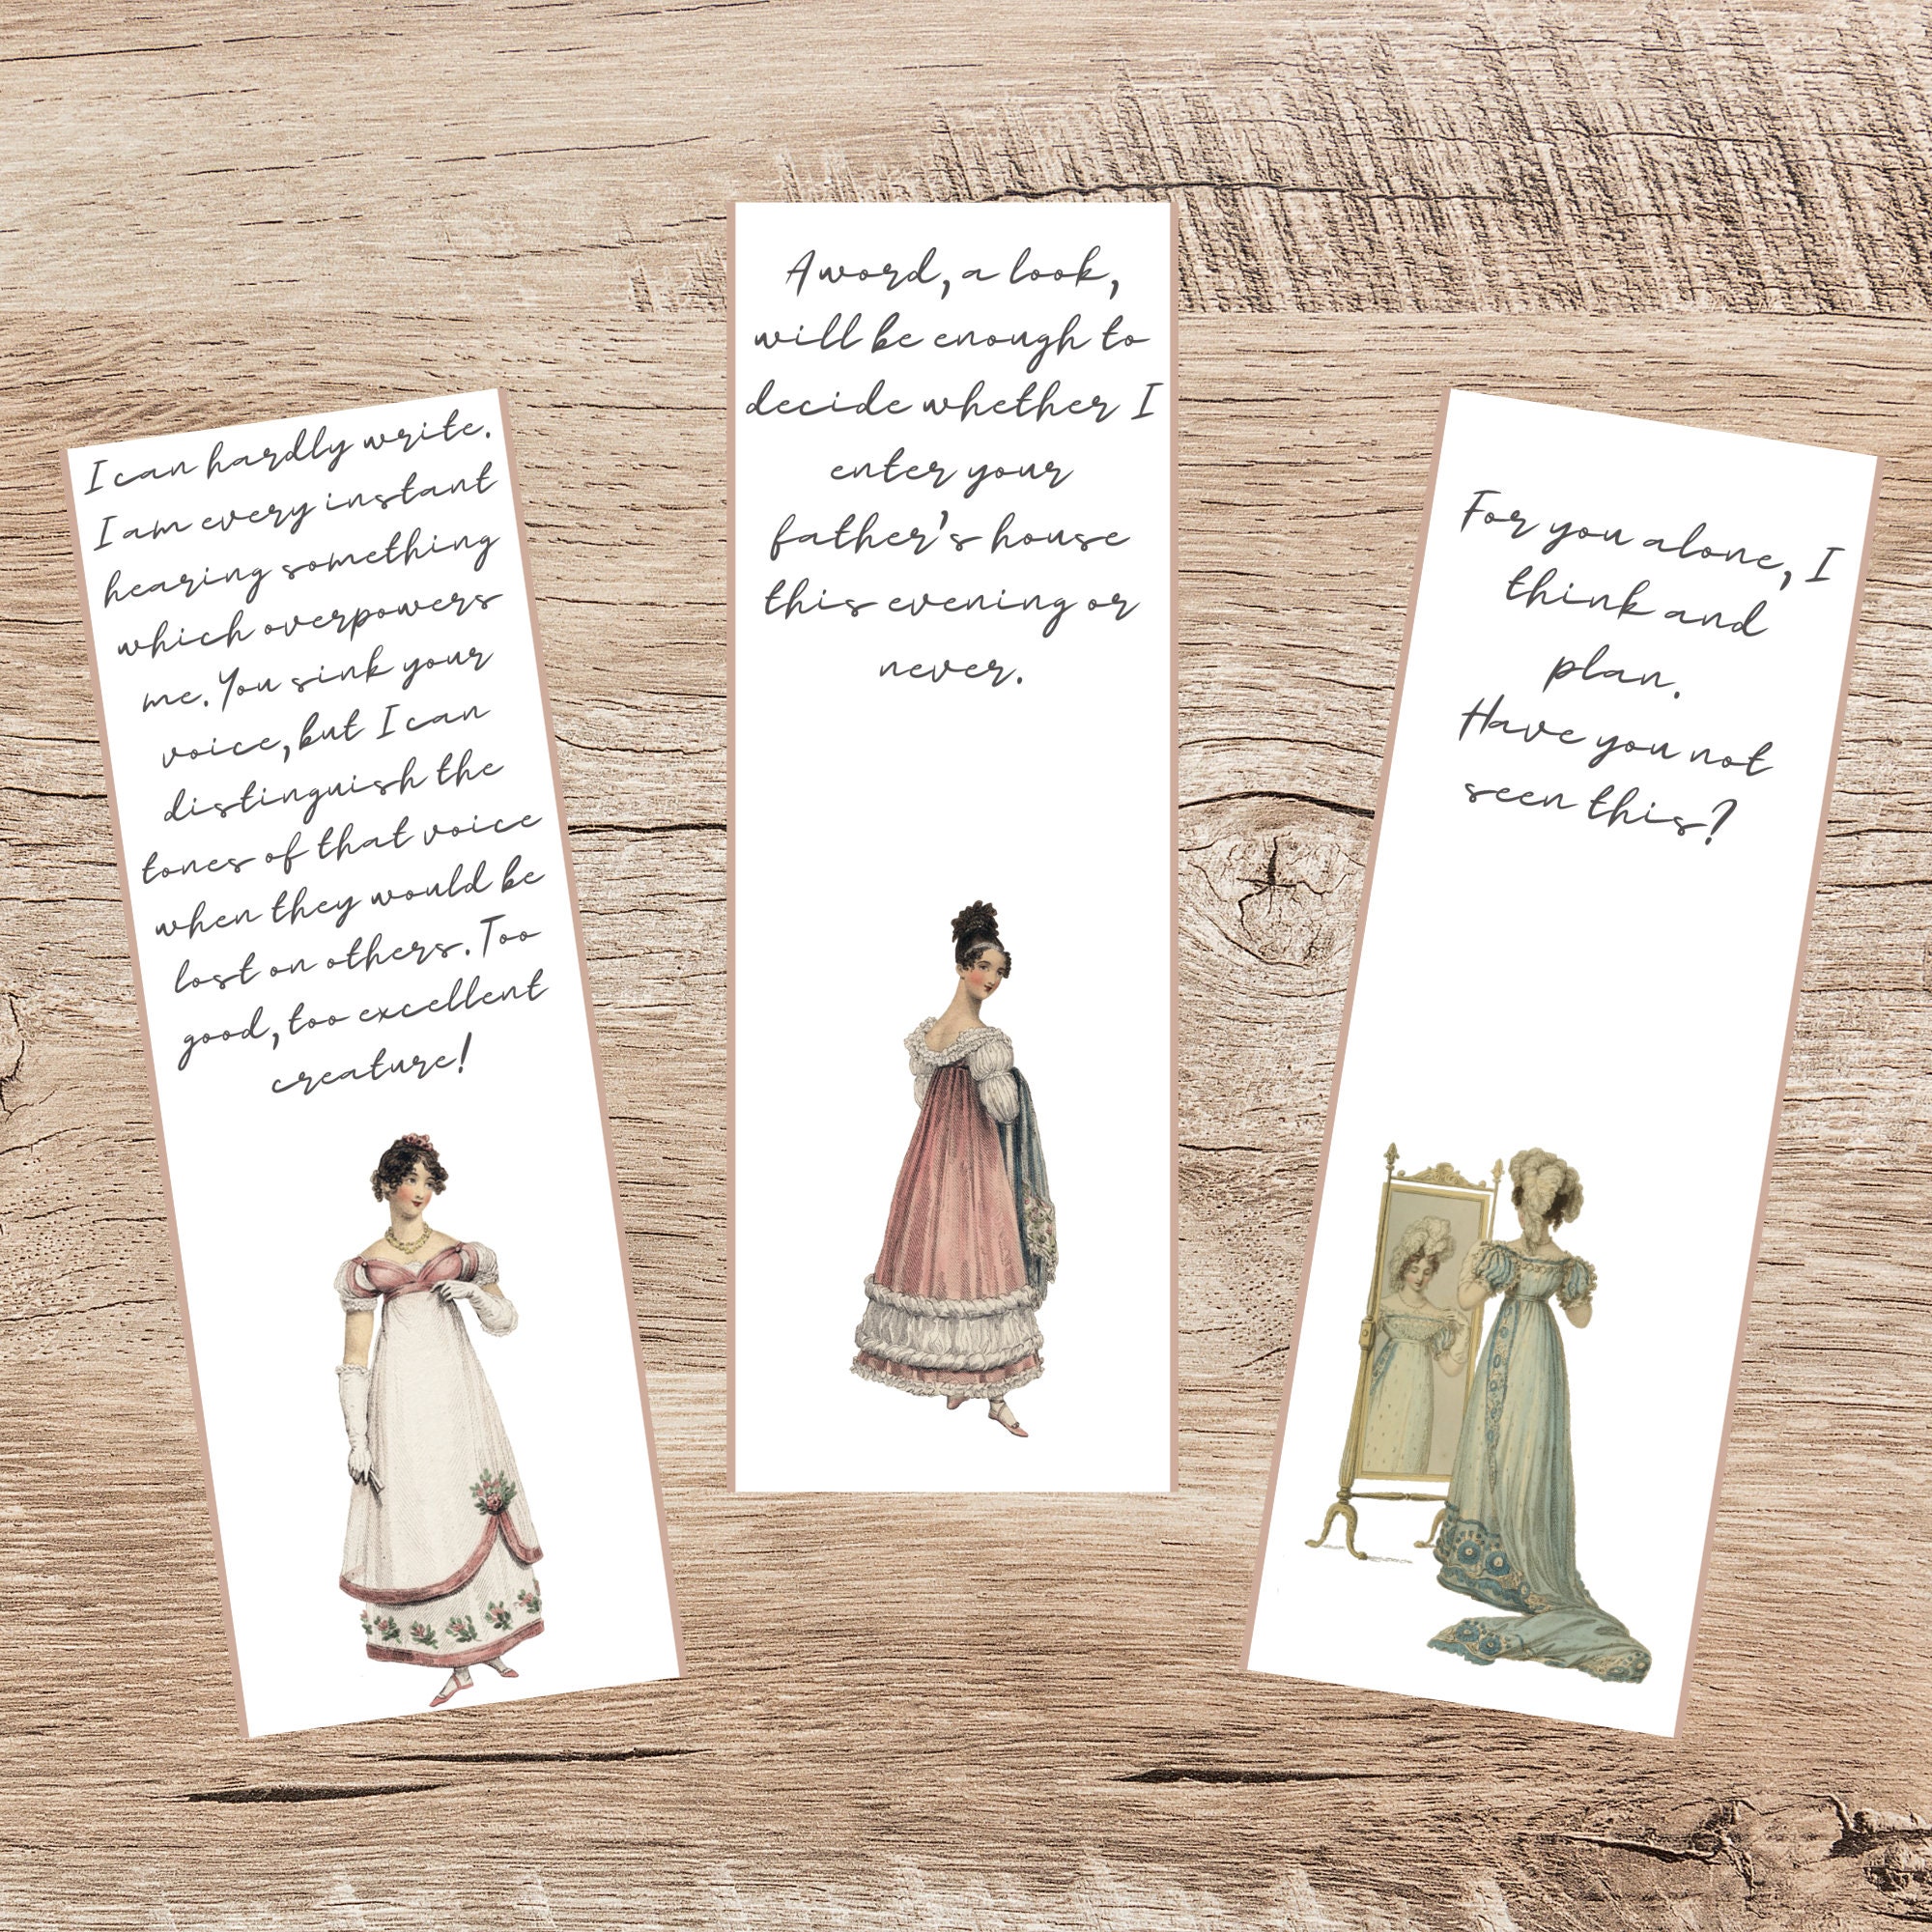 I can hardly write.
I am every instant
hearing something
which overpowers
me. You sink your
voice, but I can
distinguish the
tones of that voice
when they would be
lost on others. Too
good, too excellent
creature!
A word, a look,
will be enough to
decide whether I
enter your
father's house
this evening or
never.
For you alone, I
think and
plan.
Have you not
seen this?